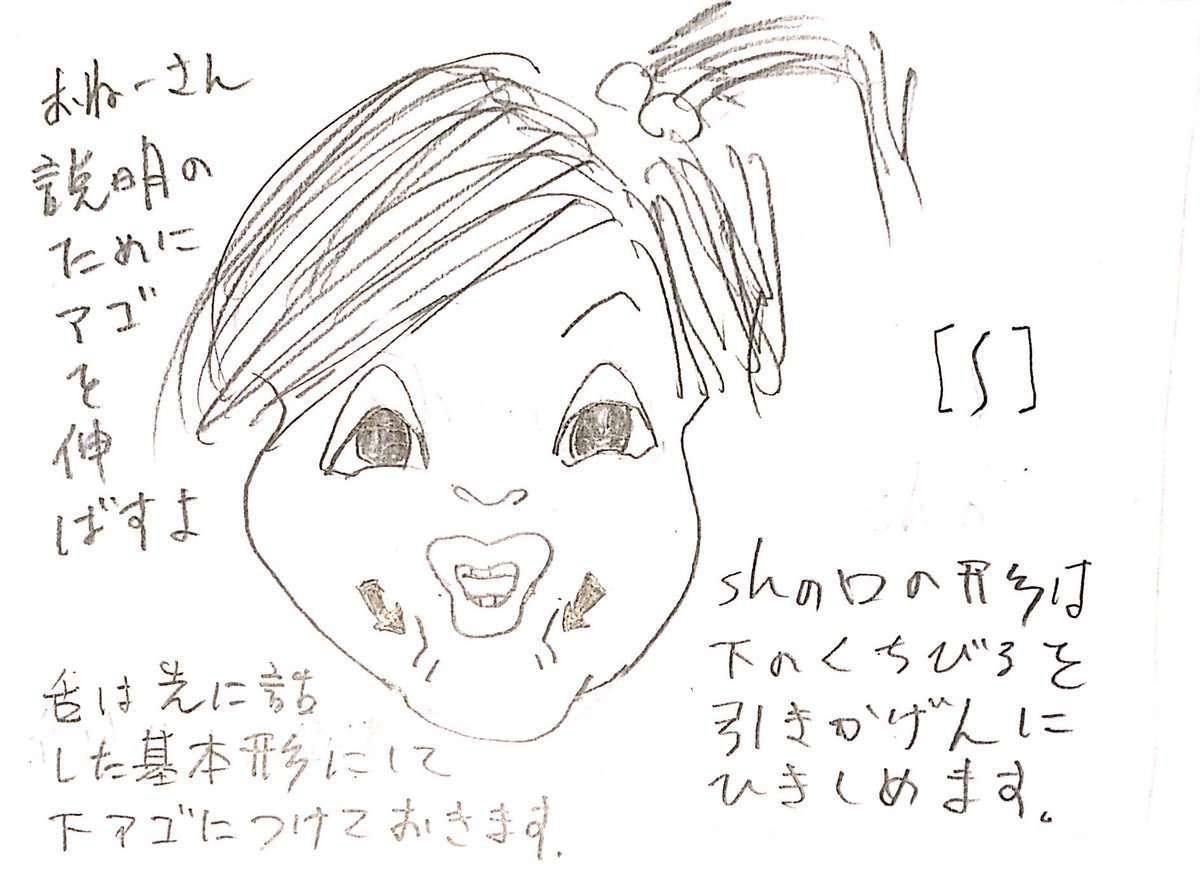 おねーさん
説明の
ために
アゴ
を
伸
ばすよ
[ʃ]
shの口の形は
下のくちびるを
引きかげんに
ひきしめます。
舌は先に話
した基本形にして
下アゴにつけておきます.